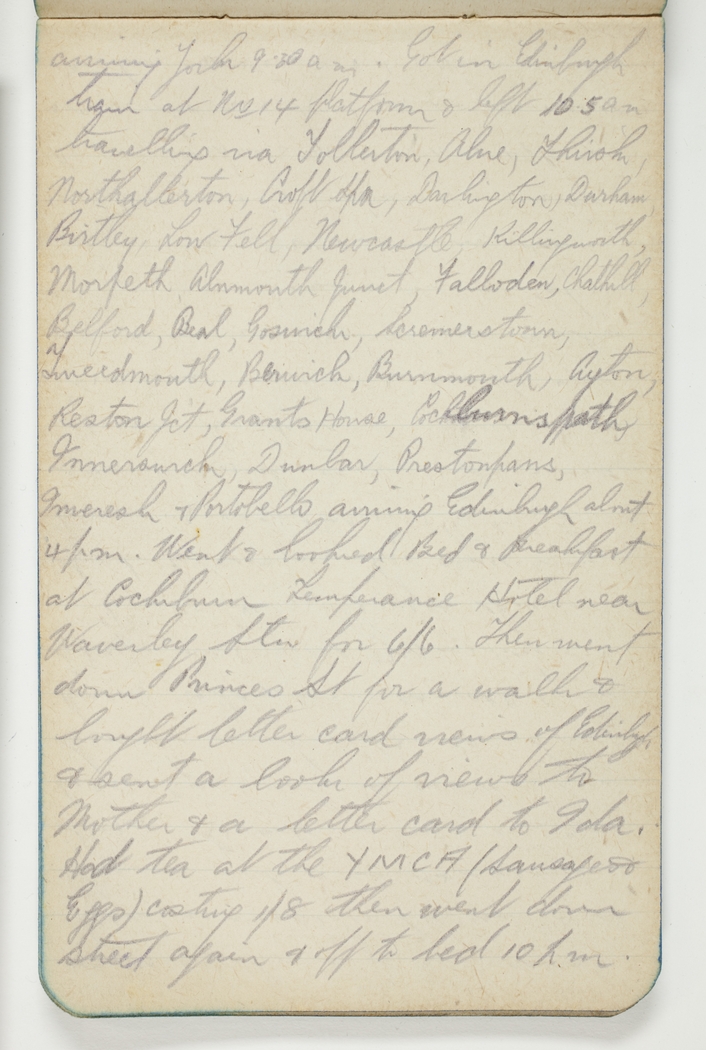 arriving York 9.30 a m. Got in Edinburgh
train at No 14 platform & left 10.5 a m
travelling via Tollerton, Alne, Thirsk,
Northallerton, Croft Spa, Darlington, Durham,
Birtley, Low Fell, Newcastle, Killingworth,
Morpeth Alnmouth Junct, Falloden, Chathill,
Belford, Beal, Goswick, Scremerston,
Tweedmouth, Berwick, Burnmouth, Ayton,
Reston Jct, Grants House, Cockburnspath,
Innerswick, Dunbar, Prestonpans,
Inveresk & Portobello arriving Edinburgh about
4 p m. Went & booked Bed & Breakfast
at Cockburn Temperance Hotel near
Waverley Stn for 6/6. Then went
down Princes St for a walk &
bought letter card views of Edinbgh
& sent a book of views to
Mother & a letter card to Ida.
Had tea at the YMCA (Sausage &
Eggs) costing 1/8 then went down
street again & off to bed 10 p.m.